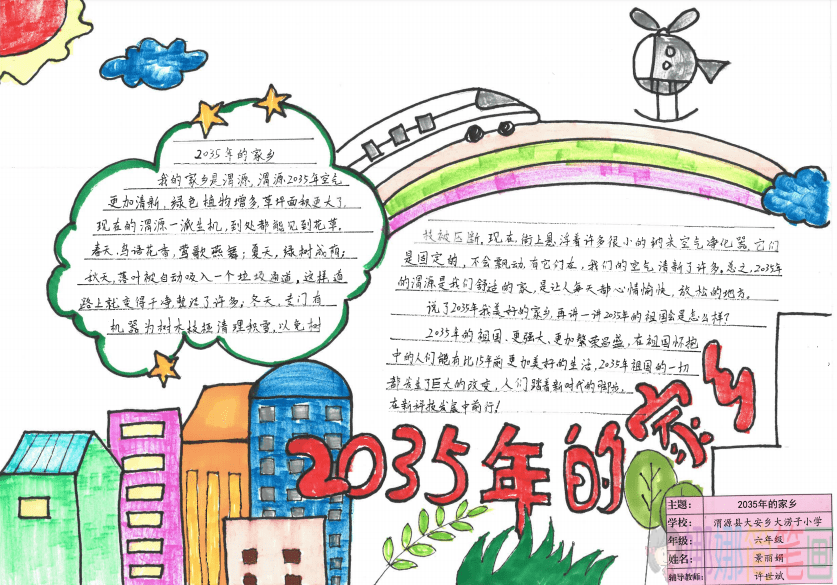 2035年的家乡
我的家乡是渭源,渭源2035年空气
更加清新,绿色植物增多,草坪面积更大了,
现在的渭源一派生机,到处都能见到花草。
春天,鸟语花香,莺歌燕舞;夏天,绿树成荫;
秋天,落叶被自动吸入一个垃圾通道,这样道
路上就变得干净整洁了许多;冬天,专门有
机器为树木枝桠清理积雪,以免树
枝被压断,现在,街上悬浮着许多很小的纳米空气净化器,它们
是固定的,不会飘动,有它们在,我们的空气清新了许多。总之,2035年
的渭源是我们舒适的家,是让人每天都心情愉快,放松的地方。
说了2035年我美好的家乡,再讲一讲2035年的祖国会是怎么样?
2035年的祖国,更强大、更加繁荣昌盛,在祖国怀抱
中的人们能有比15年前更加美好的生活,2035年祖国的一切
都发生了巨大的改变,人们踏着新时代的脚步,
在新科技发展中前行!
2035年的家乡
主题: 2035年的家乡
学校: 渭源县大安乡大涝子小学
年级: 六年级
姓名: 景丽娟
辅导教师: 许世斌